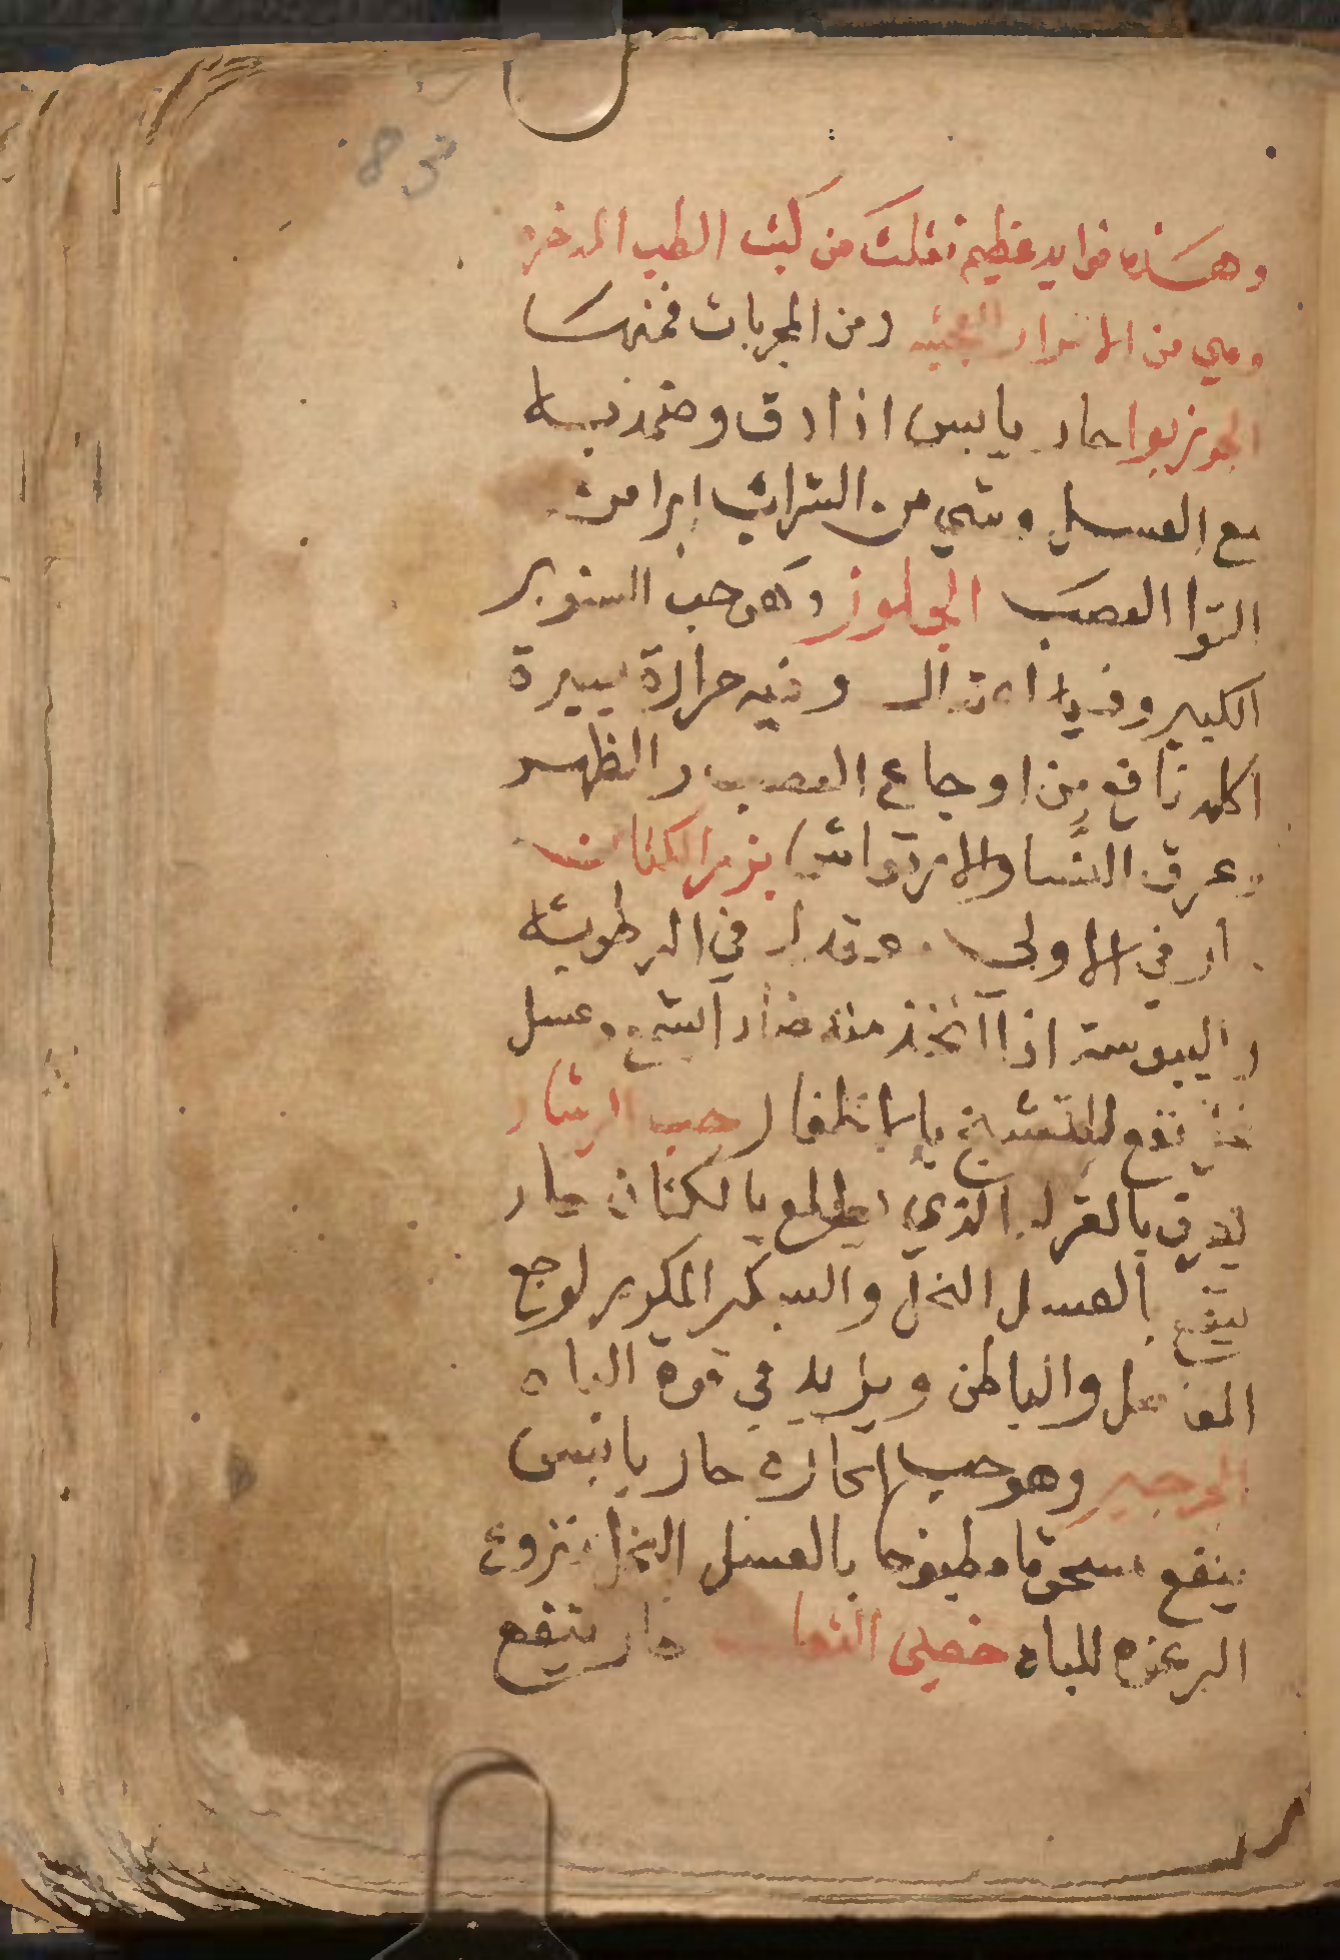 83
وهذه فوايد عظيم نقلت من كتب الطب المدخره
وهي من الاسرار العجيبه ومن المجربات فمنها
الجوزبوا حار يابس اذا دق وضمد به
مع العسل وشي من التراب ابرا من
التوا العصب الجلوز وهو حب السنوبر
الكبير وفيه اعتدال وفيه حرارة يسيرة
اكله نافع من اوجاع العصب والظهر
وعرق النسا والامرتواش بزر الكتان
حار في الاولى معتدل في الرطوبة
واليبوسة اذا اتخذ منه ضماد بشمع وعسل
نفع للتشنج بالاظفار حب الرشاد
يدق بالقرد الذي يطلع بالكتان حار
ينفع بالعسل النحل والسكر المكرر لوجع
المفاصل والباطن ويزيد في قوة الباه
الجرجير وهو حب الحاره حار يابس
ينفع مسحوقا مطبوخا بالعسل النحل منزوع
الرغوه للباه خصى الثعلب حار ينفع